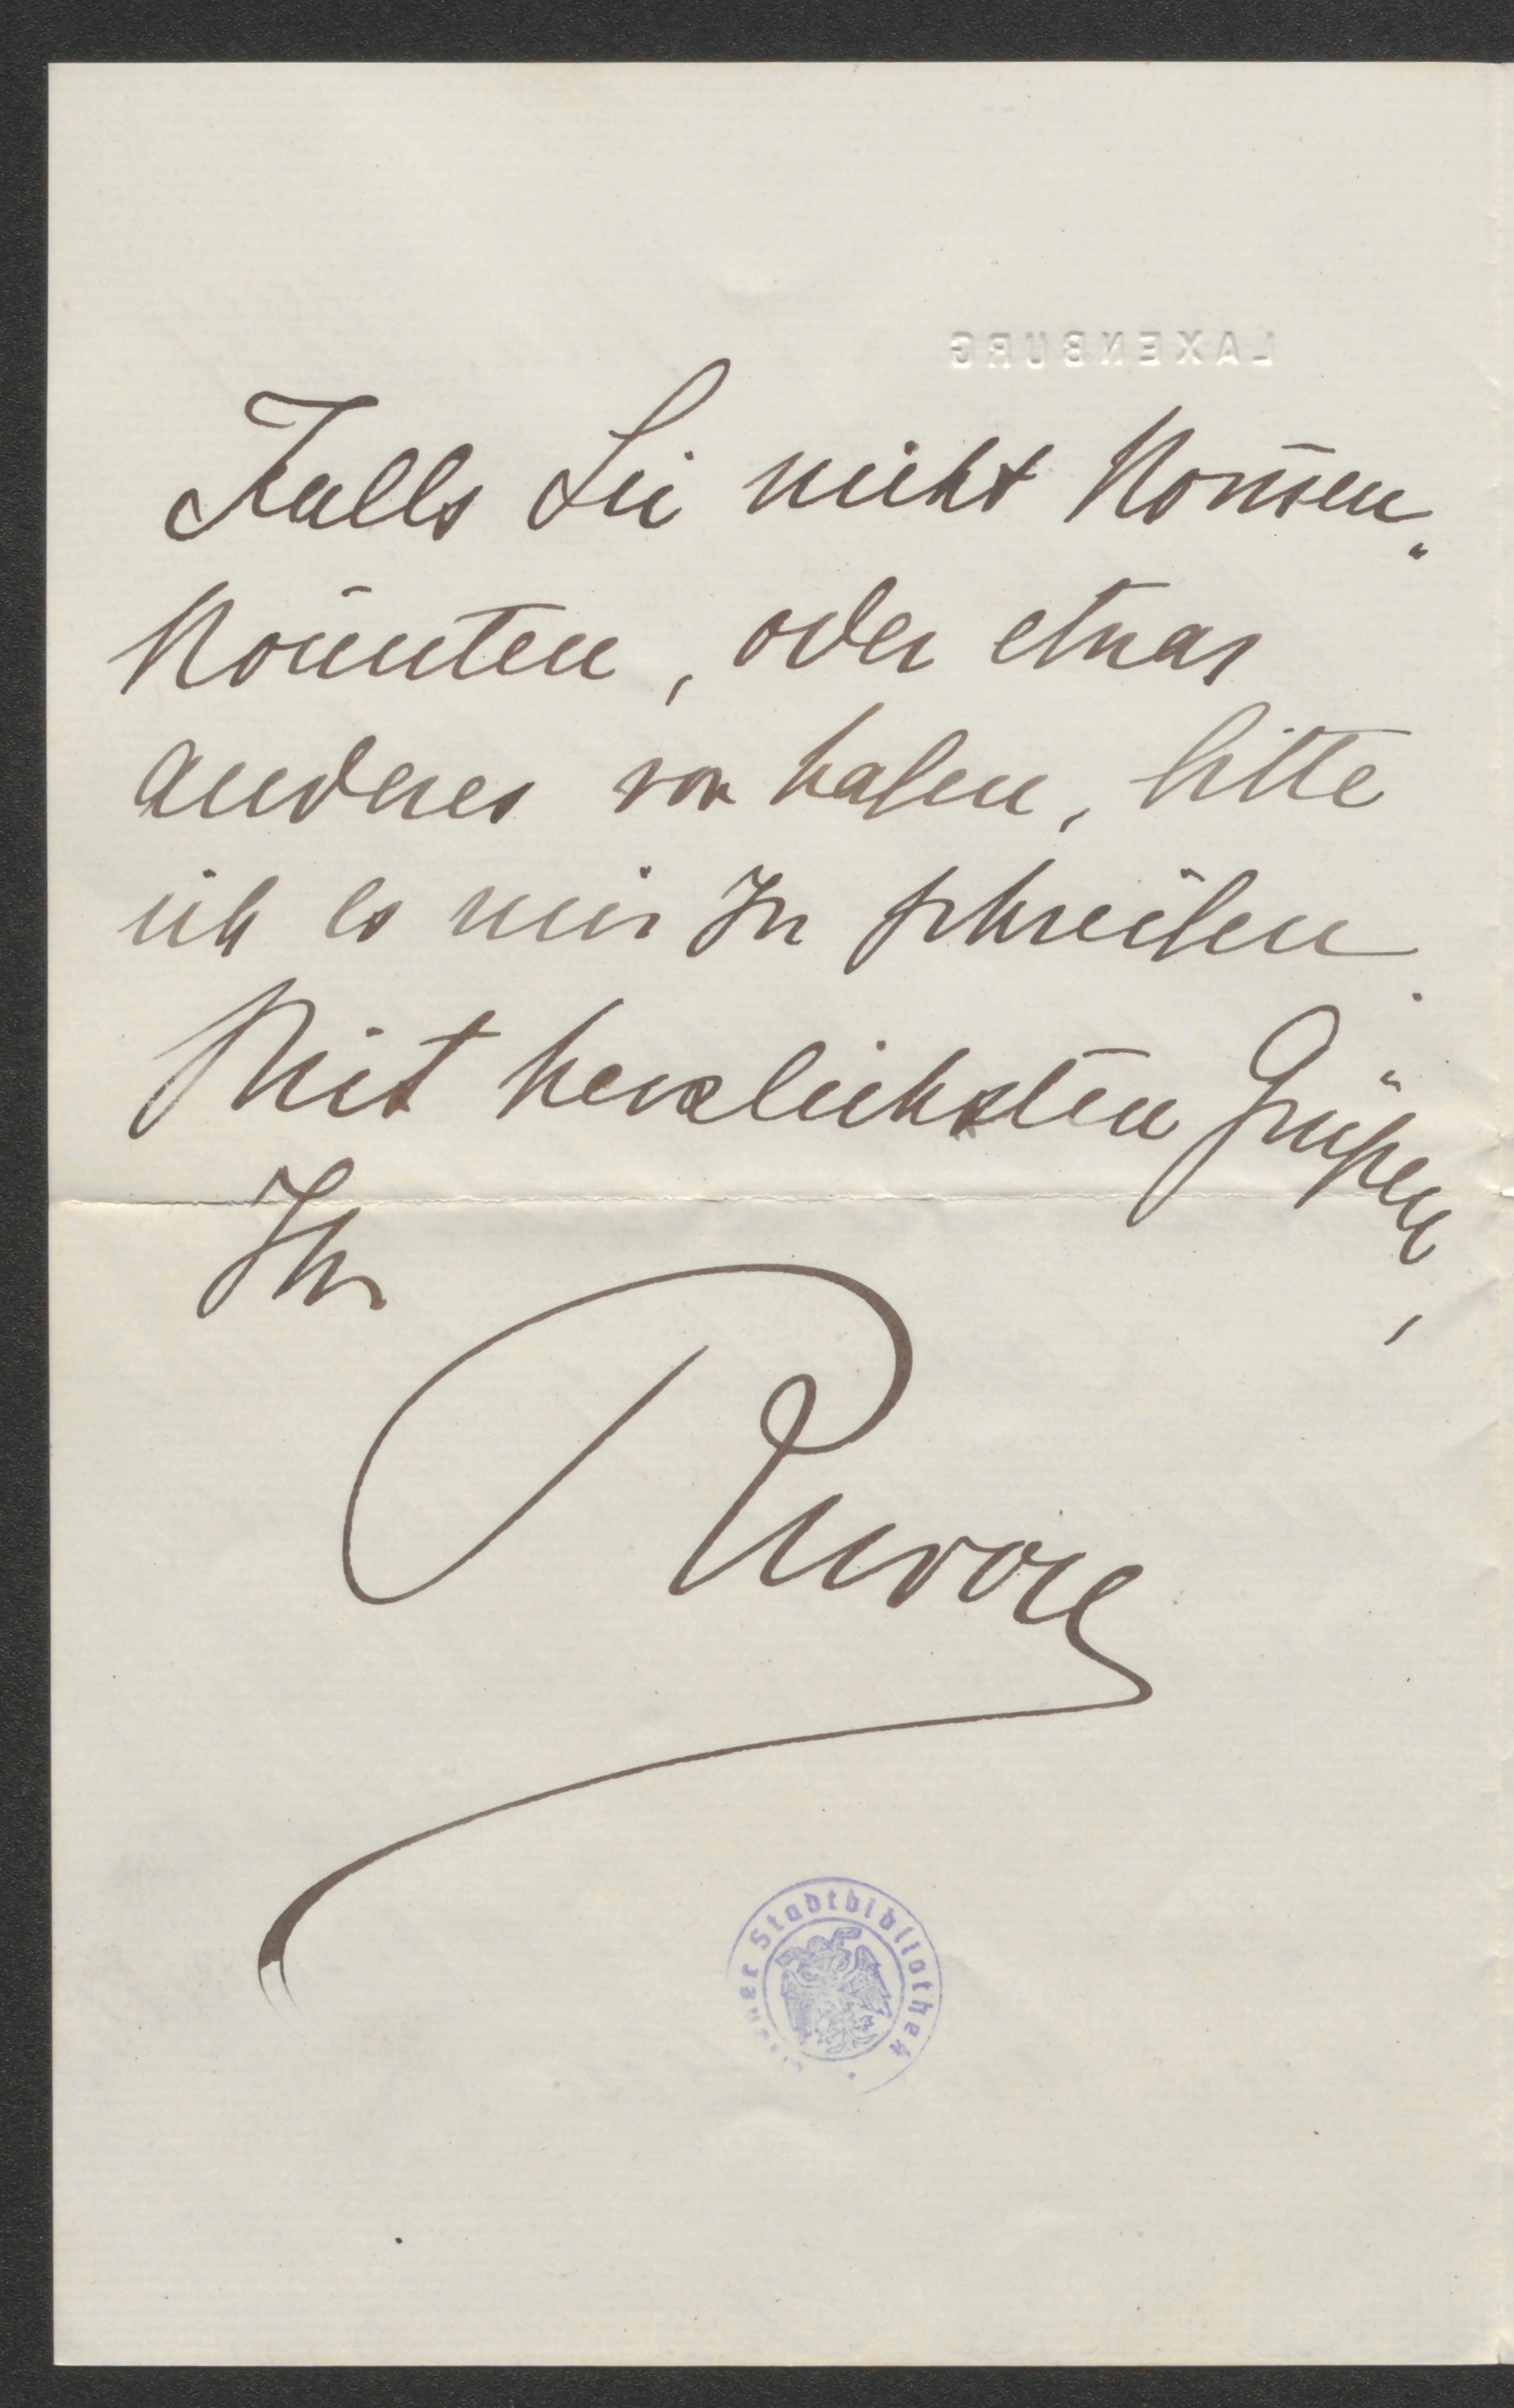 LAXENBURG
Falls Sie nicht kom̄en
könnten, oder etwas
anderes vor haben, bitte
ich es mir zu schreiben.
Mit herzlichsten Grüßen,
Ihr
Stadtbibliothek